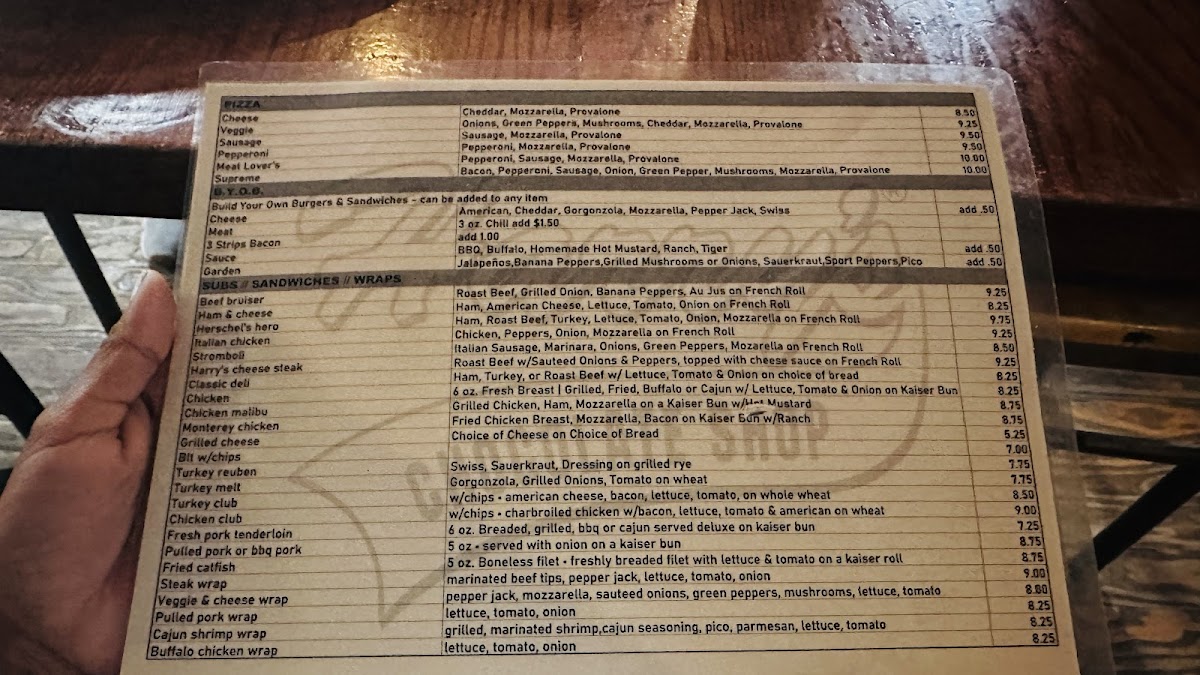 PIZZA
Cheese Cheddar, Mozzarella, Provalone 8.50
Veggie Onions, Green Peppers, Mushrooms, Cheddar, Mozzarella, Provalone 9.25
Sausage Sausage, Mozzarella, Provalone 9.50
Pepperoni Pepperoni, Mozzarella, Provalone 9.50
Meat Lover's Pepperoni, Sausage, Mozzarella, Provalone 10.00
Supreme Bacon, Pepperoni, Sausage, Onion, Green Pepper, Mushrooms, Mozzarella, Provalone 10.00
B.Y.O.B.
Build Your Own Burgers & Sandwiches - can be added to any item
Cheese American, Cheddar, Gorgonzola, Mozzarella, Pepper Jack, Swiss add .50
Meat 3 oz. Chili add $1.50
3 Strips Bacon add 1.00
Sauce BBQ, Buffalo, Homemade Hot Mustard, Ranch, Tiger add .50
Garden Jalapeños,Banana Peppers,Grilled Mushrooms or Onions, Sauerkraut,Sport Peppers,Pico add .50
SUBS // SANDWICHES // WRAPS
Beef bruiser Roast Beef, Grilled Onion, Banana Peppers, Au Jus on French Roll 9.25
Ham & cheese Ham, American Cheese, Lettuce, Tomato, Onion on French Roll 8.25
Herschel's hero Ham, Roast Beef, Turkey, Lettuce, Tomato, Onion, Mozzarella on French Roll 9.75
Italian chicken Chicken, Peppers, Onion, Mozzarella on French Roll 9.25
Stromboli Italian Sausage, Marinara, Onions, Green Peppers, Mozarella on French Roll 8.50
Harry's cheese steak Roast Beef w/Sauteed Onions & Peppers, topped with cheese sauce on French Roll 9.25
Classic deli Ham, Turkey, or Roast Beef w/ Lettuce, Tomato & Onion on choice of bread 8.25
Chicken 6 oz. Fresh Breast | Grilled, Fried, Buffalo or Cajun w/ Lettuce, Tomato & Onion on Kaiser Bun 8.25
Chicken malibu Grilled Chicken, Ham, Mozzarella on a Kaiser Bun w/Hot Mustard 8.75
Monterey chicken Fried Chicken Breast, Mozzarella, Bacon on Kaiser Bun w/Ranch 8.75
Grilled cheese Choice of Cheese on Choice of Bread 5.25
Blt w/chips 7.00
Turkey reuben Swiss, Sauerkraut, Dressing on grilled rye 7.75
Turkey melt Gorgonzola, Grilled Onions, Tomato on wheat 7.75
Turkey club w/chips • american cheese, bacon, lettuce, tomato, on whole wheat 8.50
Chicken club w/chips • charbroiled chicken w/bacon, lettuce, tomato & american on wheat 9.00
Fresh pork tenderloin 6 oz. Breaded, grilled, bbq or cajun served deluxe on kaiser bun 7.25
Pulled pork or bbq pork 5 oz • served with onion on a kaiser bun 8.75
Fried catfish 5 oz. Boneless filet • freshly breaded filet with lettuce & tomato on a kaiser roll 8.75
Steak wrap marinated beef tips, pepper jack, lettuce, tomato, onion 9.00
Veggie & cheese wrap pepper jack, mozzarella, sauteed onions, green peppers, mushrooms, lettuce, tomato 8.80
Pulled pork wrap lettuce, tomato, onion 8.25
Cajun shrimp wrap grilled, marinated shrimp,cajun seasoning, pico, parmesan, lettuce, tomato 8.25
Buffalo chicken wrap lettuce, tomato, onion 8.25
SHOP